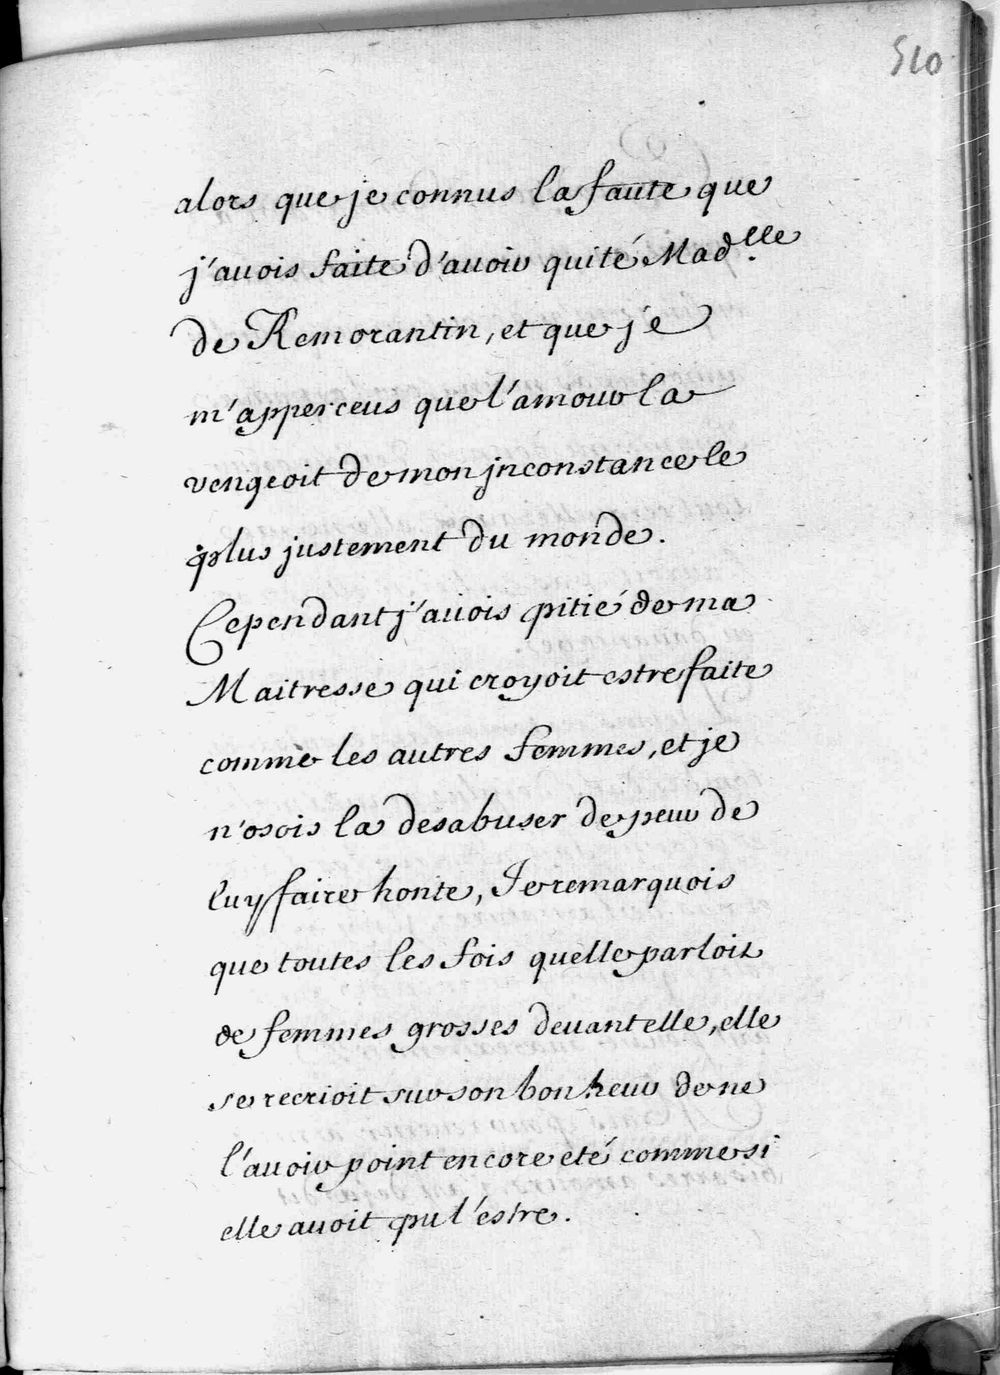 510
alors que je connus la faute que
j'auois faite d'auoir quité Mad.lle
de Remorantin, et que je
m'apperceus que l'amour la
vengeoit de mon jnconstance le
plus justement du monde.
Cependant j'auois pitié de ma
Maitresse qui croyoit estre faite
comme les autres femmes, et je
n'osois la desabuser de peur de
luy faire honte, Je remarquois
que toutes les fois quelle parloit
de femmes grosses deuant elle, elle
se recrioit sur son bonheur de ne
l'auoir point encore eté comme si
elle auoit pu l'estre.